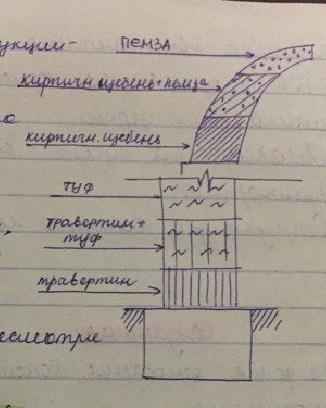 ПЕМЗА
кирпичн. щебень+пемза
кирпичн. щебень
туф
травертин+
туф
травертин